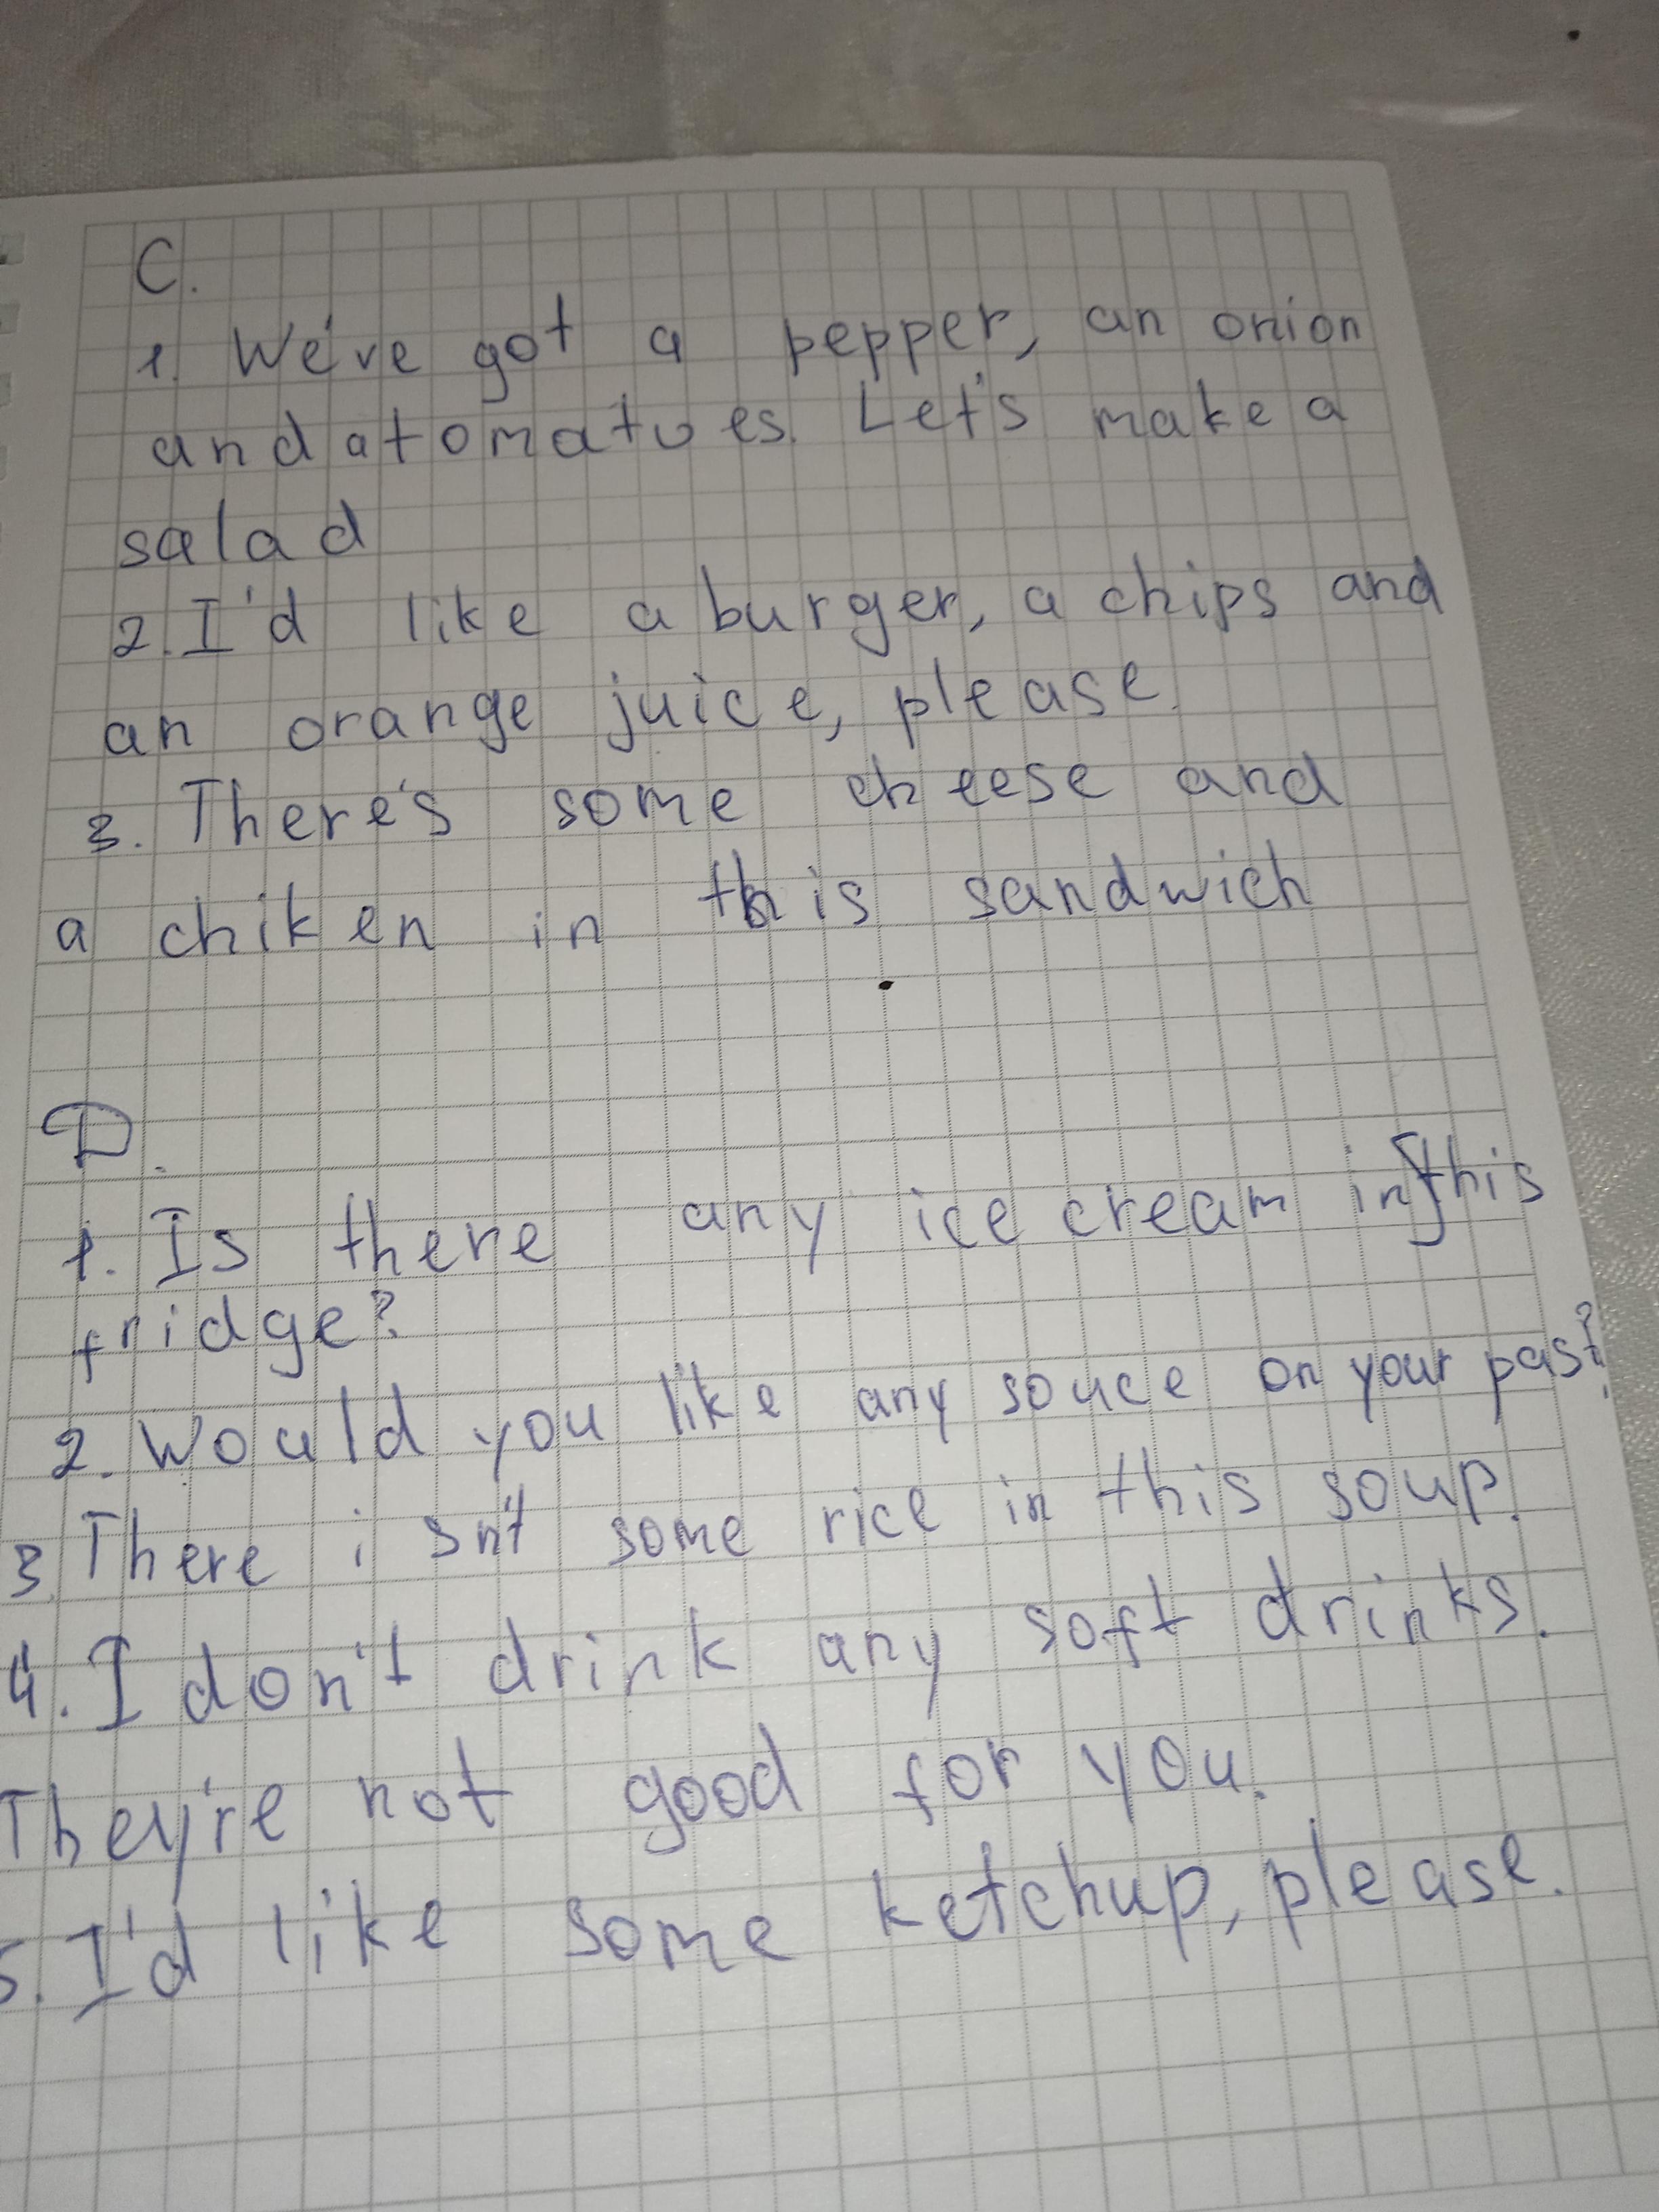 C.
1. We've got a pepper, an onion
and a tomatoes. Let's make a
salad
2. I'd like a burger, a chips and
an orange juice, please.
3. There's some cheese and
a chiken in this sandwich
D.
1. Is there any ice cream in this
fridge?
2. Would you like any souce on your past?
3. There isn't some rice in this soup.
4. I don't drink any soft drinks.
They're not good for you.
5. I'd like some ketchup, please.